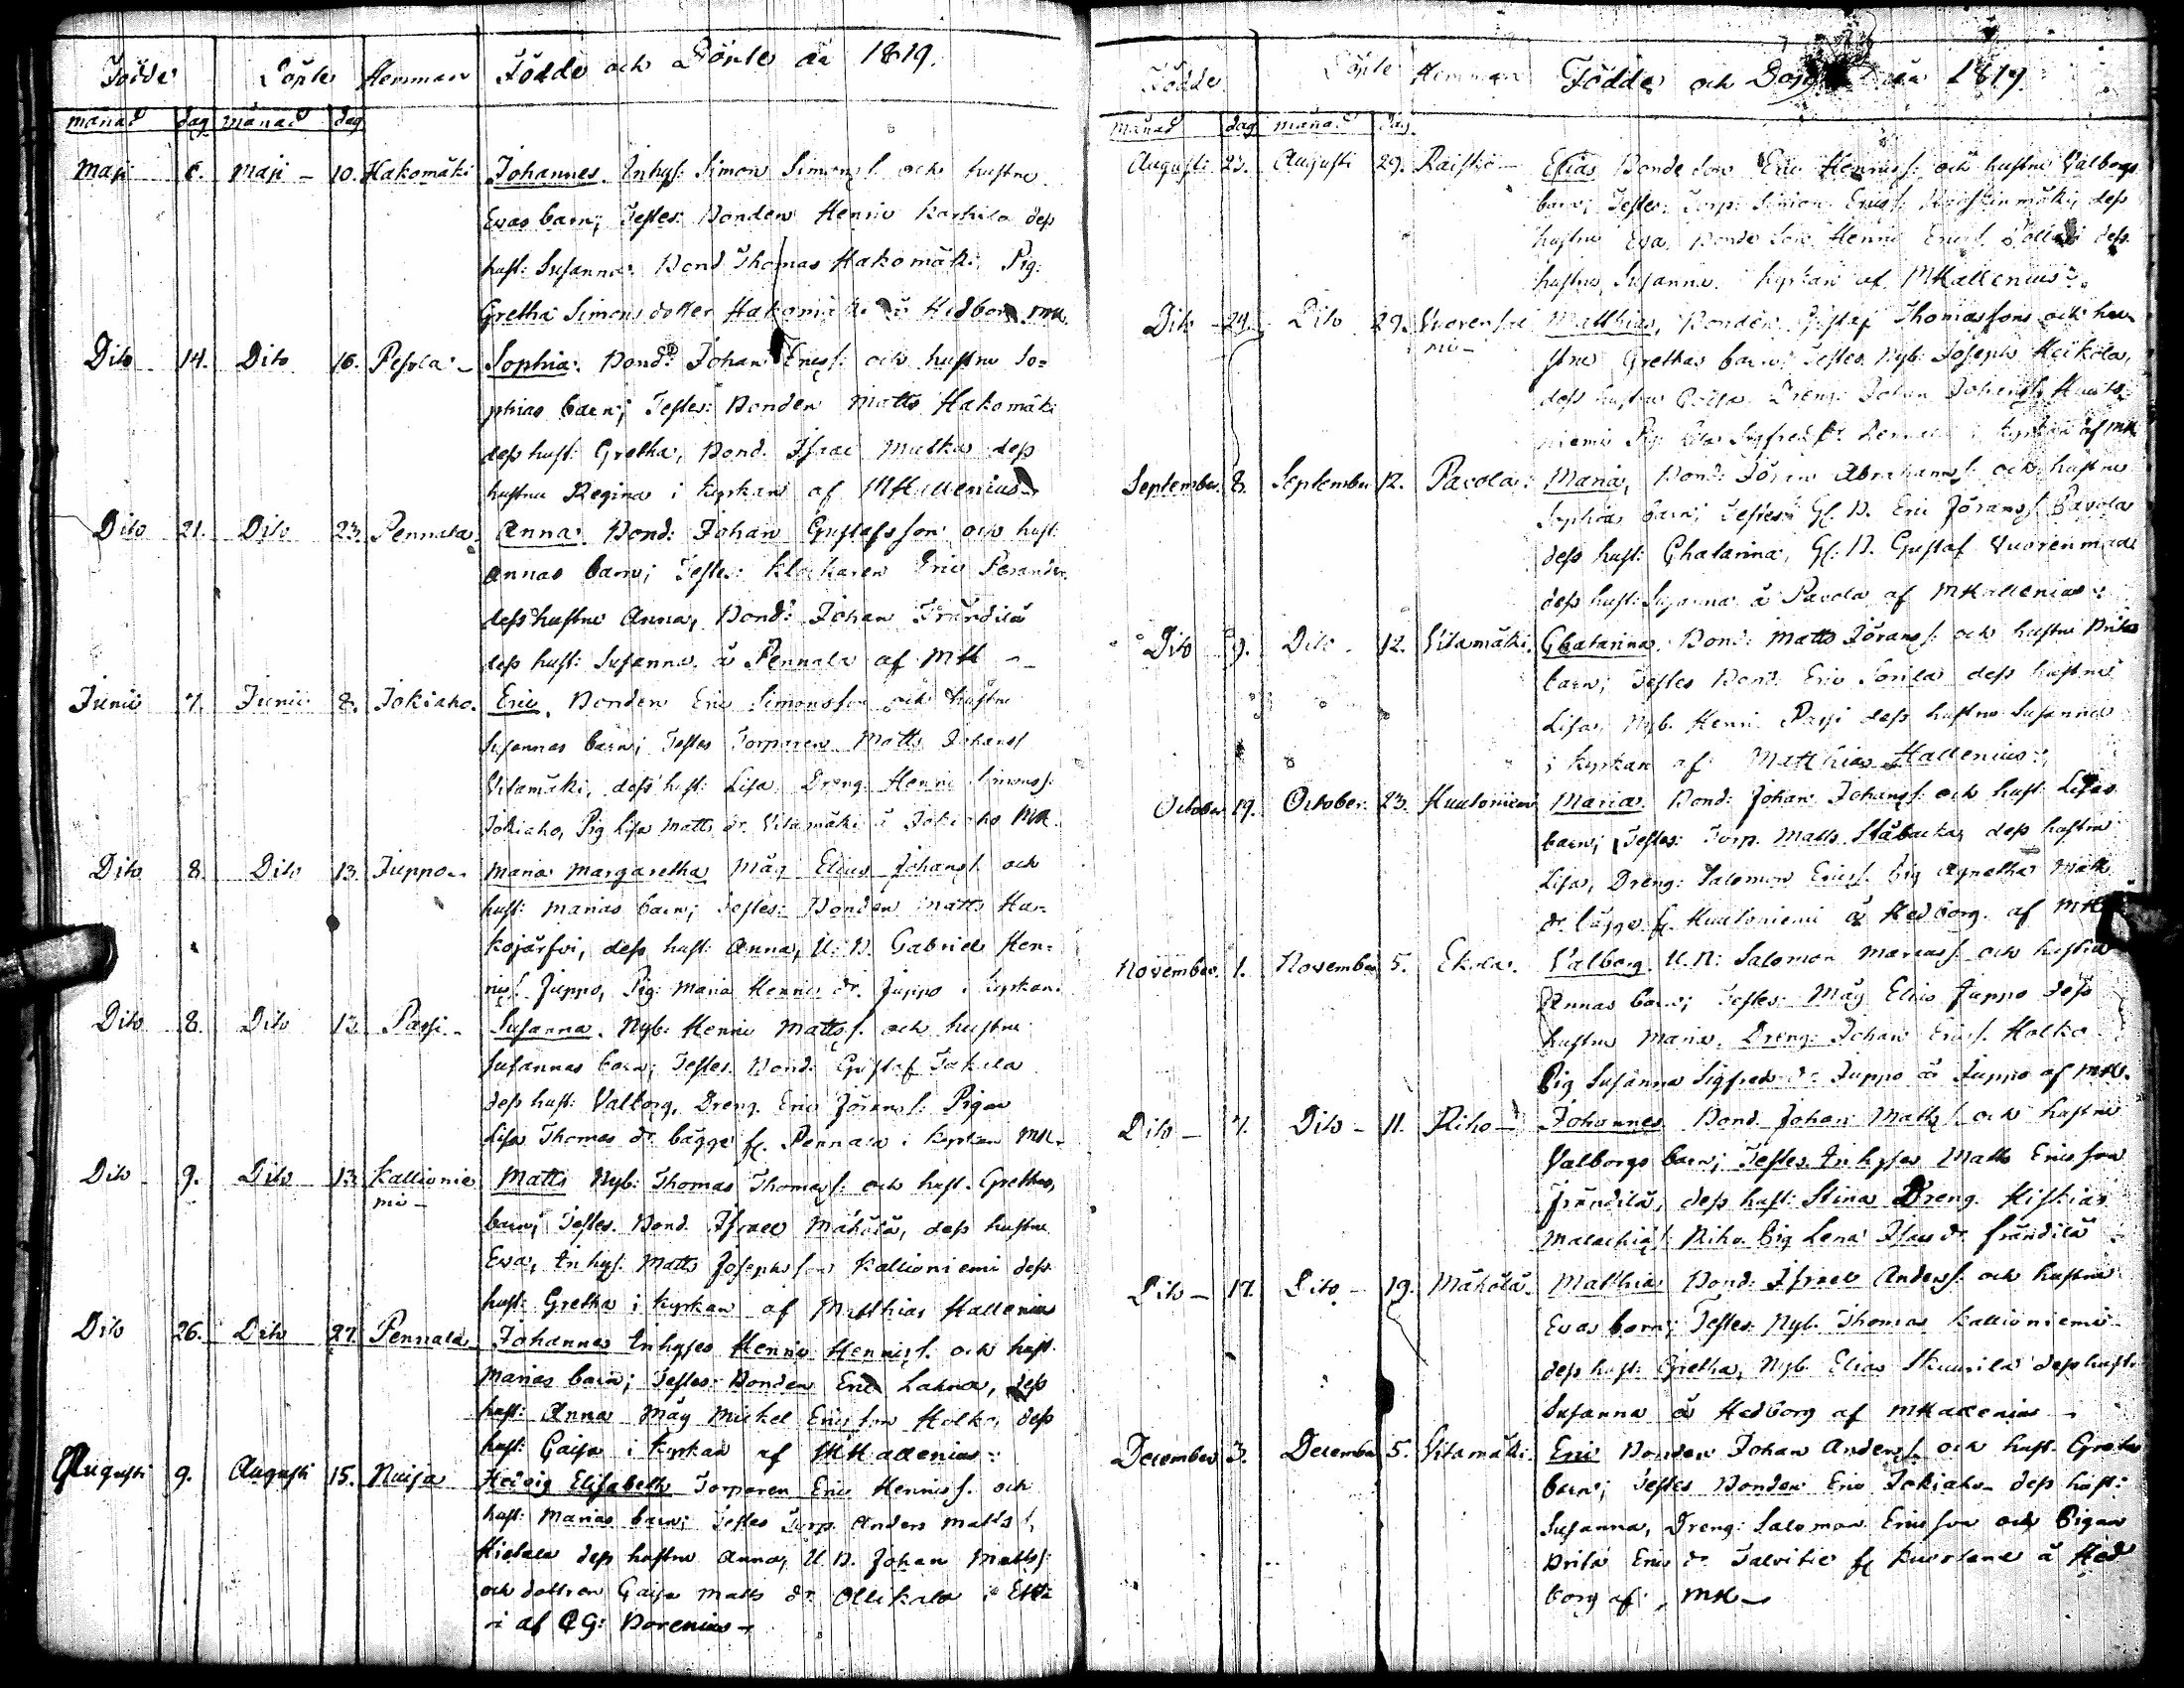 Födde Döpte Hemman Födde och Döpte åå 1819.
månad dag månad dag
Maji 6. Maji - 10. Hakomäki Johannes. Inhys: Simon Simonss: och hustru
Evas barn; Testes: Bonden Henric Karhila dess
hust: Susanna. Bond Thomas Hakomäki, Pig:
Gretha Simons dotter Hakomäki å Hedborg MH.
Dito 14. Dito 16. Pesola - Sophia. Bond: Johan Ericss: och hustru So-
phias barn; Testes: Bonden Matts Hakomäki
dess hust: Gretha, Bond. Isaac Mulka dess
hustru Regina i kyrkan af MHallenius
Dito 21. Dito 23. Pennala. Anna. Bond: Johan Gustafsson och hust:
Annas barn; Testes: Klockaren Eric Perander
dess hustru Anna, Bond: Johan Frändilä
dess hust: Susanna å Pennala af MH -
Junii 7. Junii 8. Jokiaho. Eric. Bonden Eric Simonsson och hustru
Susannas barn; Testes Torparen Matts Johanss
Vitamäki, dess hust: Lisa. Dreng: Henric Simonss:
Jokiaho, Pig Lisa Matts dr. Vitamäki å Jokiaho MH.
Dito 8. Dito 13. Juppo - Maria Margaretha Måg Elias Johanss. och
hust: Marias barn; Testes: Bonden Matts Ha-
kojärfvi, dess hust: Anna, U: B. Gabriel Hen-
ricss. Juppo, Pig: Maria Henrics dr. Juppo i kyrkan.
Dito 8. Dito 13. Passi - Susanna. Nyb: Henric Mattss. och hustru
Susannas barn; Testes. Bond: Gustaf Jakila
dess hust: Valborg, Dreng. Eric Jöranss: Pigan
Lisa Thomas dr. bägge fr. Pennala i kyrkan MH.
Dito 9. Dito 13. Kallionie Matts Nyb: Thomas Thomass: och hust. Grethas,
mi - barn; Testes. Bond. Israel Mäkölä, dess hustru
Eva, Inhys: Matts Josephsson Kallioniemi dess
hust: Gretha i kyrkan af Matthias Hallenius
Dito 26. Dito 27. Pennala. Johannes Inhyses Henric Henricss: och hust.
Marias barn; Testes: Bonden Eric Lahna, dess
hust: Anna Måg Michel Ericsson Holko, dess
hust: Caisa i kyrkan af MHallenius
Augusti 9. Augusti 15. Nuija Hedvig Elisabeth Torparen Eric Henricss. och
hust: Marias barn; Testes Torp. Anders Mattss.
Hietala dess hustru Anna, U B. Johan Mattss:
och dottren Caisa Matts dr. Ollikala i Että
ri af CG: Borenius -
Födde Döpte Hemman Födde och åå 1819.
månad dag månad dag.
Augusti 23. Augusti 29. Raiskio - Elias Bonde Son Eric Henricss: och hustru Valborgs
barn; Testes: Torp: Simon Ericss: dess
hustru Eva, Bonde Son Henric Ericss. Pollari dess
hustru Susanna. kyrkan af MHallenius.
Dito - 24. Dito 29. Vuorenie Matthias, Bonden Gustaf Thomassons och hu-
mi - stru Grethas barn; Testes Nyb: Joseph Heikola,
dess hustru Caisa. Dreng: Johan Johanss Huuto-
niemi Pig: Sigfreds dr. Pennala i kyrkan af MH.
September 8. September 12. Pavola. Maria, Bond: Jöran Abrahams: och hustru
Sophias barn; Testes: Gl: B. Eric Jöranss: Pavola
dess hust: Chatarina, Gl: B. Gustaf Vuorenmaa
dess hust: Susanna å Pavola af MHallenius.
Dito 9. Dito - 12. Vitamäki. Chatarina. Bond: Matts Jöranss: och hustru Britas
barn; Testes Bond: Eric Sorila dess hustru
Lisa, Nyb. Henric Passi dess hustru Susanna
i kyrkan af Matthias Hallenius.
October 19. October. 23. Huutoniemi Maria. Bond: Johan Johanss: och hust: Lisas
barn; Testes: Torp. Matts Stäbacka, dess hustru
Lisa, Dreng: Salomon Ericss. Pig Agnetha Matts
dr. bägge fr. Huutoniemi å Hedborg. af MH
November. 1. November 5. Ekola. Valborg. U.N: Salomon Mariass: och hustru
Annas barn; Testes: Måg Elias Juppo dess
hustru Maria. Dreng: Johan Ericss. Holko
Pig Susanna Sigfreds dr. Juppo å Juppo af MH.
Dito - 7. Dito - 11. Riho - Johannes. Bond Johan Mattss. och hustru
Valborgs barn; Testes. Inhyses Matts Ericsson
Frändilä, dess hust: Stina Dreng. Hiskias
Malachiass: Riho. Pig Lena Isacs dr. Frändilä
Dito - 17. Dito - 19. Mäkölä. Matthias Bond: Israel Anderss: och hustru
Evas barn; Testes. Nyb. Thomas Kallioniemi
dess hust: Gretha, Nyb. Elias Skuurila dess hust:
Susanna å Hedborg af MHallenius -
December 3. December 5. Vitamäki. Eric Bonden Johan Anderss. och hust. Grethas
barn; Testes Bonden Eric Jokiaho dess hust:
Susanna, Dreng: Salomon Ericsson och Pigan
Brita Erics dr. Talvitie fr Kuortane å Hed
borg af MH -